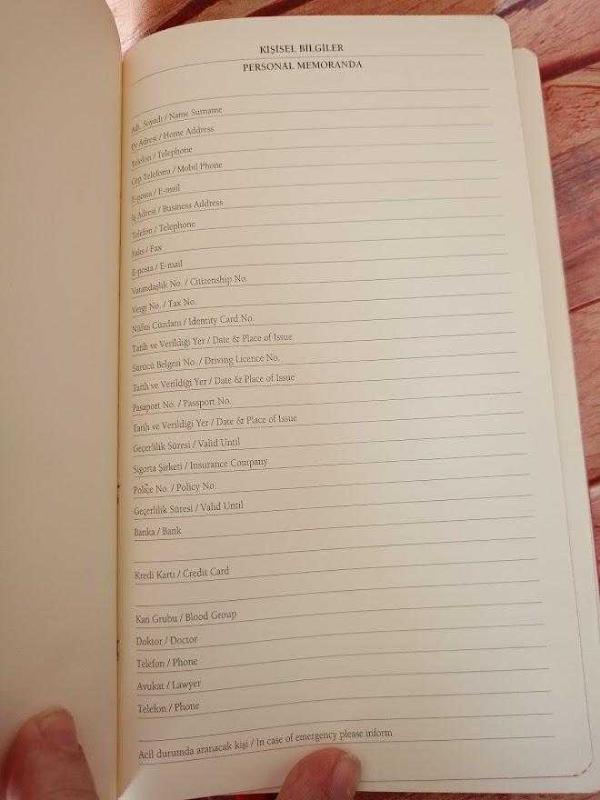 KIŞISEL BILGILER
PERSONAL MEMORANDA
Adı, Soyadı / Name Surname
Ev Adresi / Home Address
Telefon / Telephone
Cep Telefonu / Mobil Phone
E-posta / E-mail
İş Adresi / Business Address
Telefon / Telephone
Faks / Fax
E-posta / E-mail
Vatandaşlık No. / Citizenship No.
Vergi No. / Tax No.
Nüfus Cüzdanı / Identity Card No.
Tarih ve Verildiği Yer / Date & Place of Issue
Sürücü Belgesi No. / Driving Licence No.
Tarih ve Verildiği Yer / Date & Place of Issue
Pasaport No. / Passport No.
Tarih ve Verildiği Yer / Date & Place of Issue
Geçerlilik Süresi / Valid Until
Sigorta Şirketi / Insurance Company
Poliçe No. / Policy No.
Geçerlilik Süresi / Valid Until
Banka / Bank
Kredi Kartı / Credit Card
Kan Grubu / Blood Group
Doktor / Doctor
Telefon / Phone
Avukat / Lawyer
Telefon / Phone
Acil durumda aranacak kişi / In case of emergency please inform